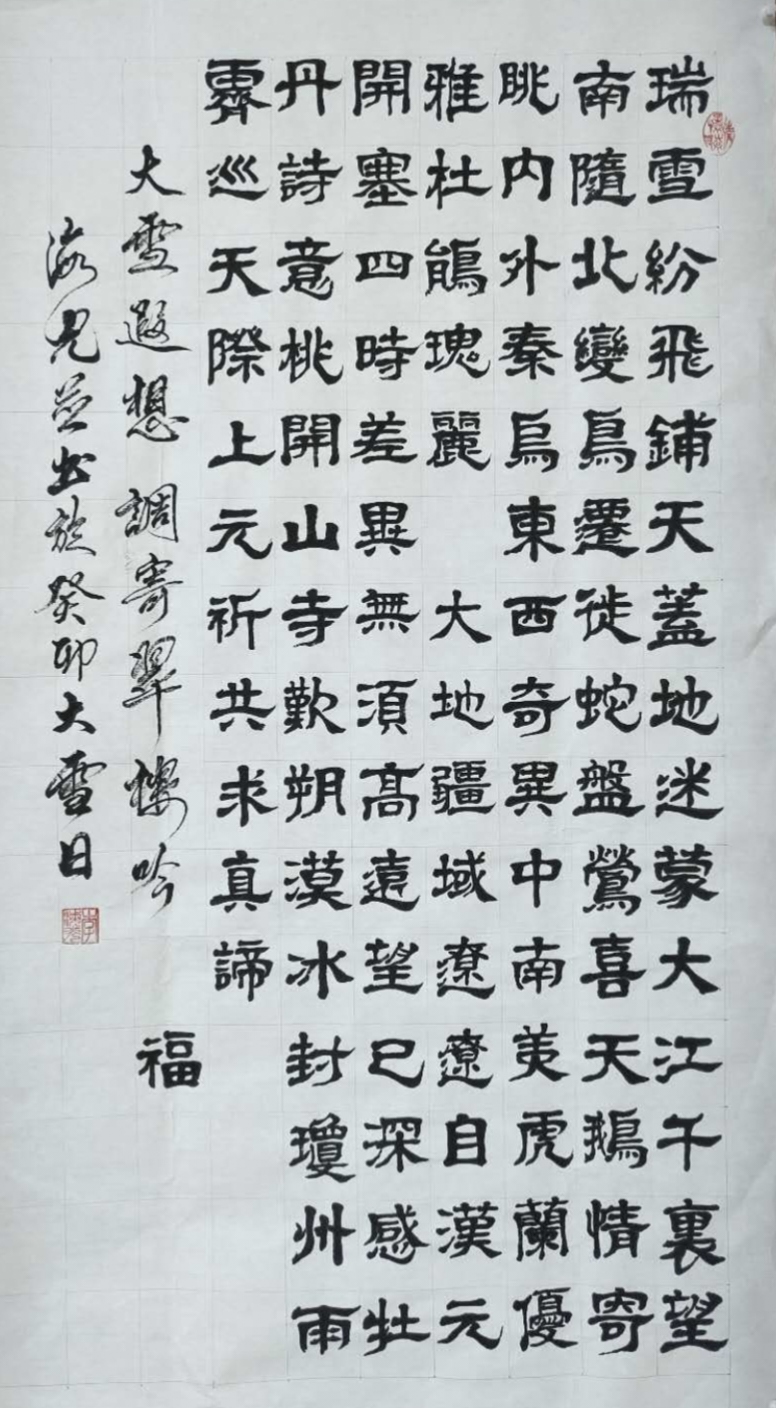 瑞雪紛飛鋪天蓋地迷蒙大江千裏望
南隨北變鳥遷徙蛇盤鶯喜天鵝情寄
眺内外秦烏東西奇異中南美虎蘭優
雅杜鵑瑰麗 大地疆域遼遼自漢元
開塞四時差異無須高遠望已深感牡
丹詩意桃開山寺歎朔漠冰封瓊州雨
霽巡天際上元祈共求真諦
大雪遐想調寄翠樓吟 福
海兄並書於癸卯大雪日